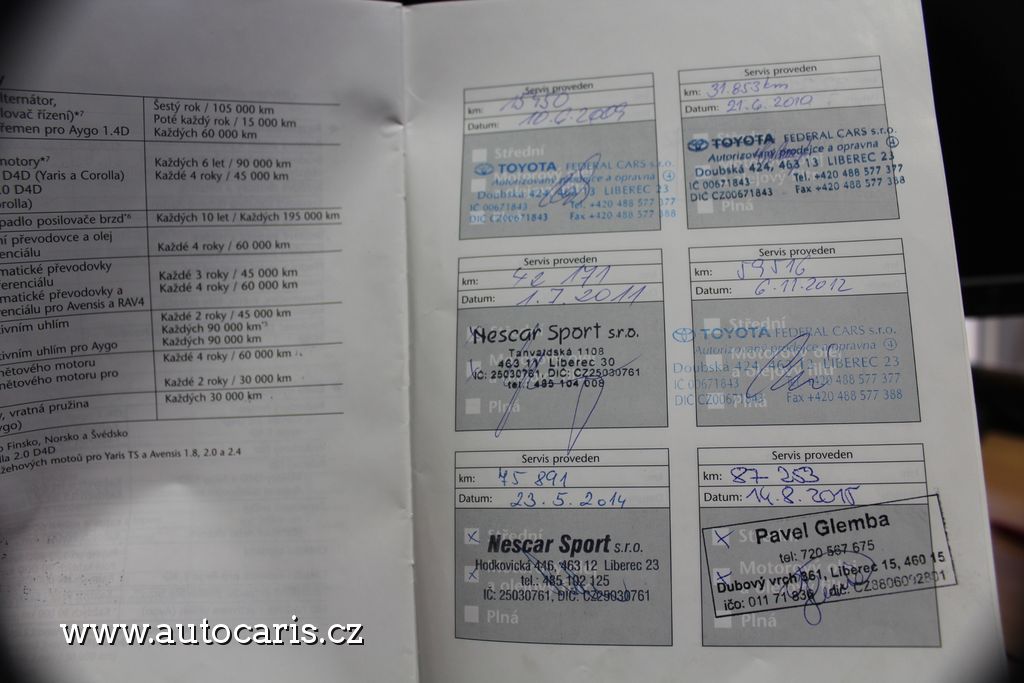 lternátor,
lovač řízení)*⁷
řemen pro Aygo 1.4D
Šestý rok / 105 000 km
Poté každý rok / 15 000 km
Každých 60 000 km
motory*⁷
D4D (Yaris a Corolla)
.0 D4D
orolla)
Každých 6 let / 90 000 km
Každé 4 roky / 45 000 km
padlo posilovače brzd*⁶
Každých 10 let / Každých 195 000 km
ní převodovce a olej
enciálu
Každé 4 roky / 60 000 km
matické převodovky
erenciálu
matické převodovky a
renciálu pro Avensis a RAV4
Každé 3 roky / 45 000 km
Každé 4 roky / 60 000 km
tivním uhlím
tivním uhlím pro Aygo
Každé 2 roky / 45 000 km
Každých 90 000 km*⁵
Každých 90 000 km
nětového motoru
nětového motoru pro
Každé 4 roky / 60 000 km
Každé 2 roky / 30 000 km
y, vratná pružina
ygo)
Každých 30 000 km
o Finsko, Norsko a Švédsko
lla 2.0 D4D
žehových motoů pro Yaris TS a Avensis 1.8, 2.0 a 2.4
Servis proveden
km: 15450
Datum: 10.6.2009
Střední
TOYOTA FEDERAL CARS s.r.o.
Autorizovaný prodejce a opravna 4
Doubská 424, 463 13 LIBEREC 23
IČ 00671843 Tel. +420 488 577 377
DIČ CZ00671843 Fax +420 488 577 388
Servis proveden
km: 31.853km
Datum: 21.6.2010
TOYOTA FEDERAL CARS s.r.o.
Autorizovaný prodejce a opravna 4
Doubská 424, 463 13 LIBEREC 23
IČ 00671843 Tel. +420 488 577 377
DIČ CZ00671843 Fax +420 488 577 388
Plná
Servis proveden
km: 42 171
Datum: 1.7.2011
Nescar Sport s.r.o.
Tanvaldská 1108
463 11 Liberec 30
IČ: 25030761, DIČ: CZ25030761
tel.: 485 104 008
Plná
Servis proveden
km: 59516
Datum: 6.11.2012
Střední
TOYOTA FEDERAL CARS s.r.o.
Autorizovaný prodejce a opravna 4
Doubská 424, 463 13 LIBEREC 23
IČ 00671843 Tel. +420 488 577 377
DIČ CZ00671843 Fax +420 488 577 388
Plná
Servis proveden
km: 75 891
Datum: 23.5.2014
Střední
Nescar Sport s.r.o.
Hodkovická 446, 463 12 Liberec 23
tel.: 485 102 125
IČ: 25030761, DIČ: CZ25030761
Plná
Servis proveden
km: 87-253
Datum: 14.8.2015
Pavel Glemba
tel: 720 567 675
Dubový vrch 361, Liberec 15, 460 15
ičo: 011 71 836 dič: CZ8606092801
Plná
www.autocaris.cz